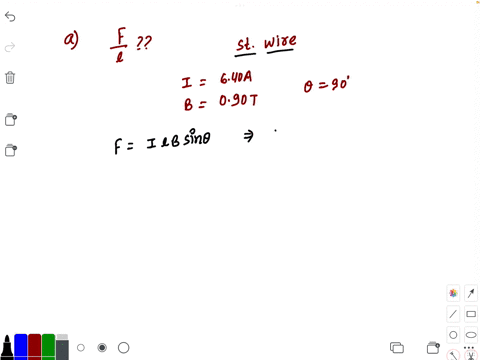 a) F/l ?? st. wire
I = 6.40A
B = 0.90T θ = 90°
F = I l B sinθ ⇒